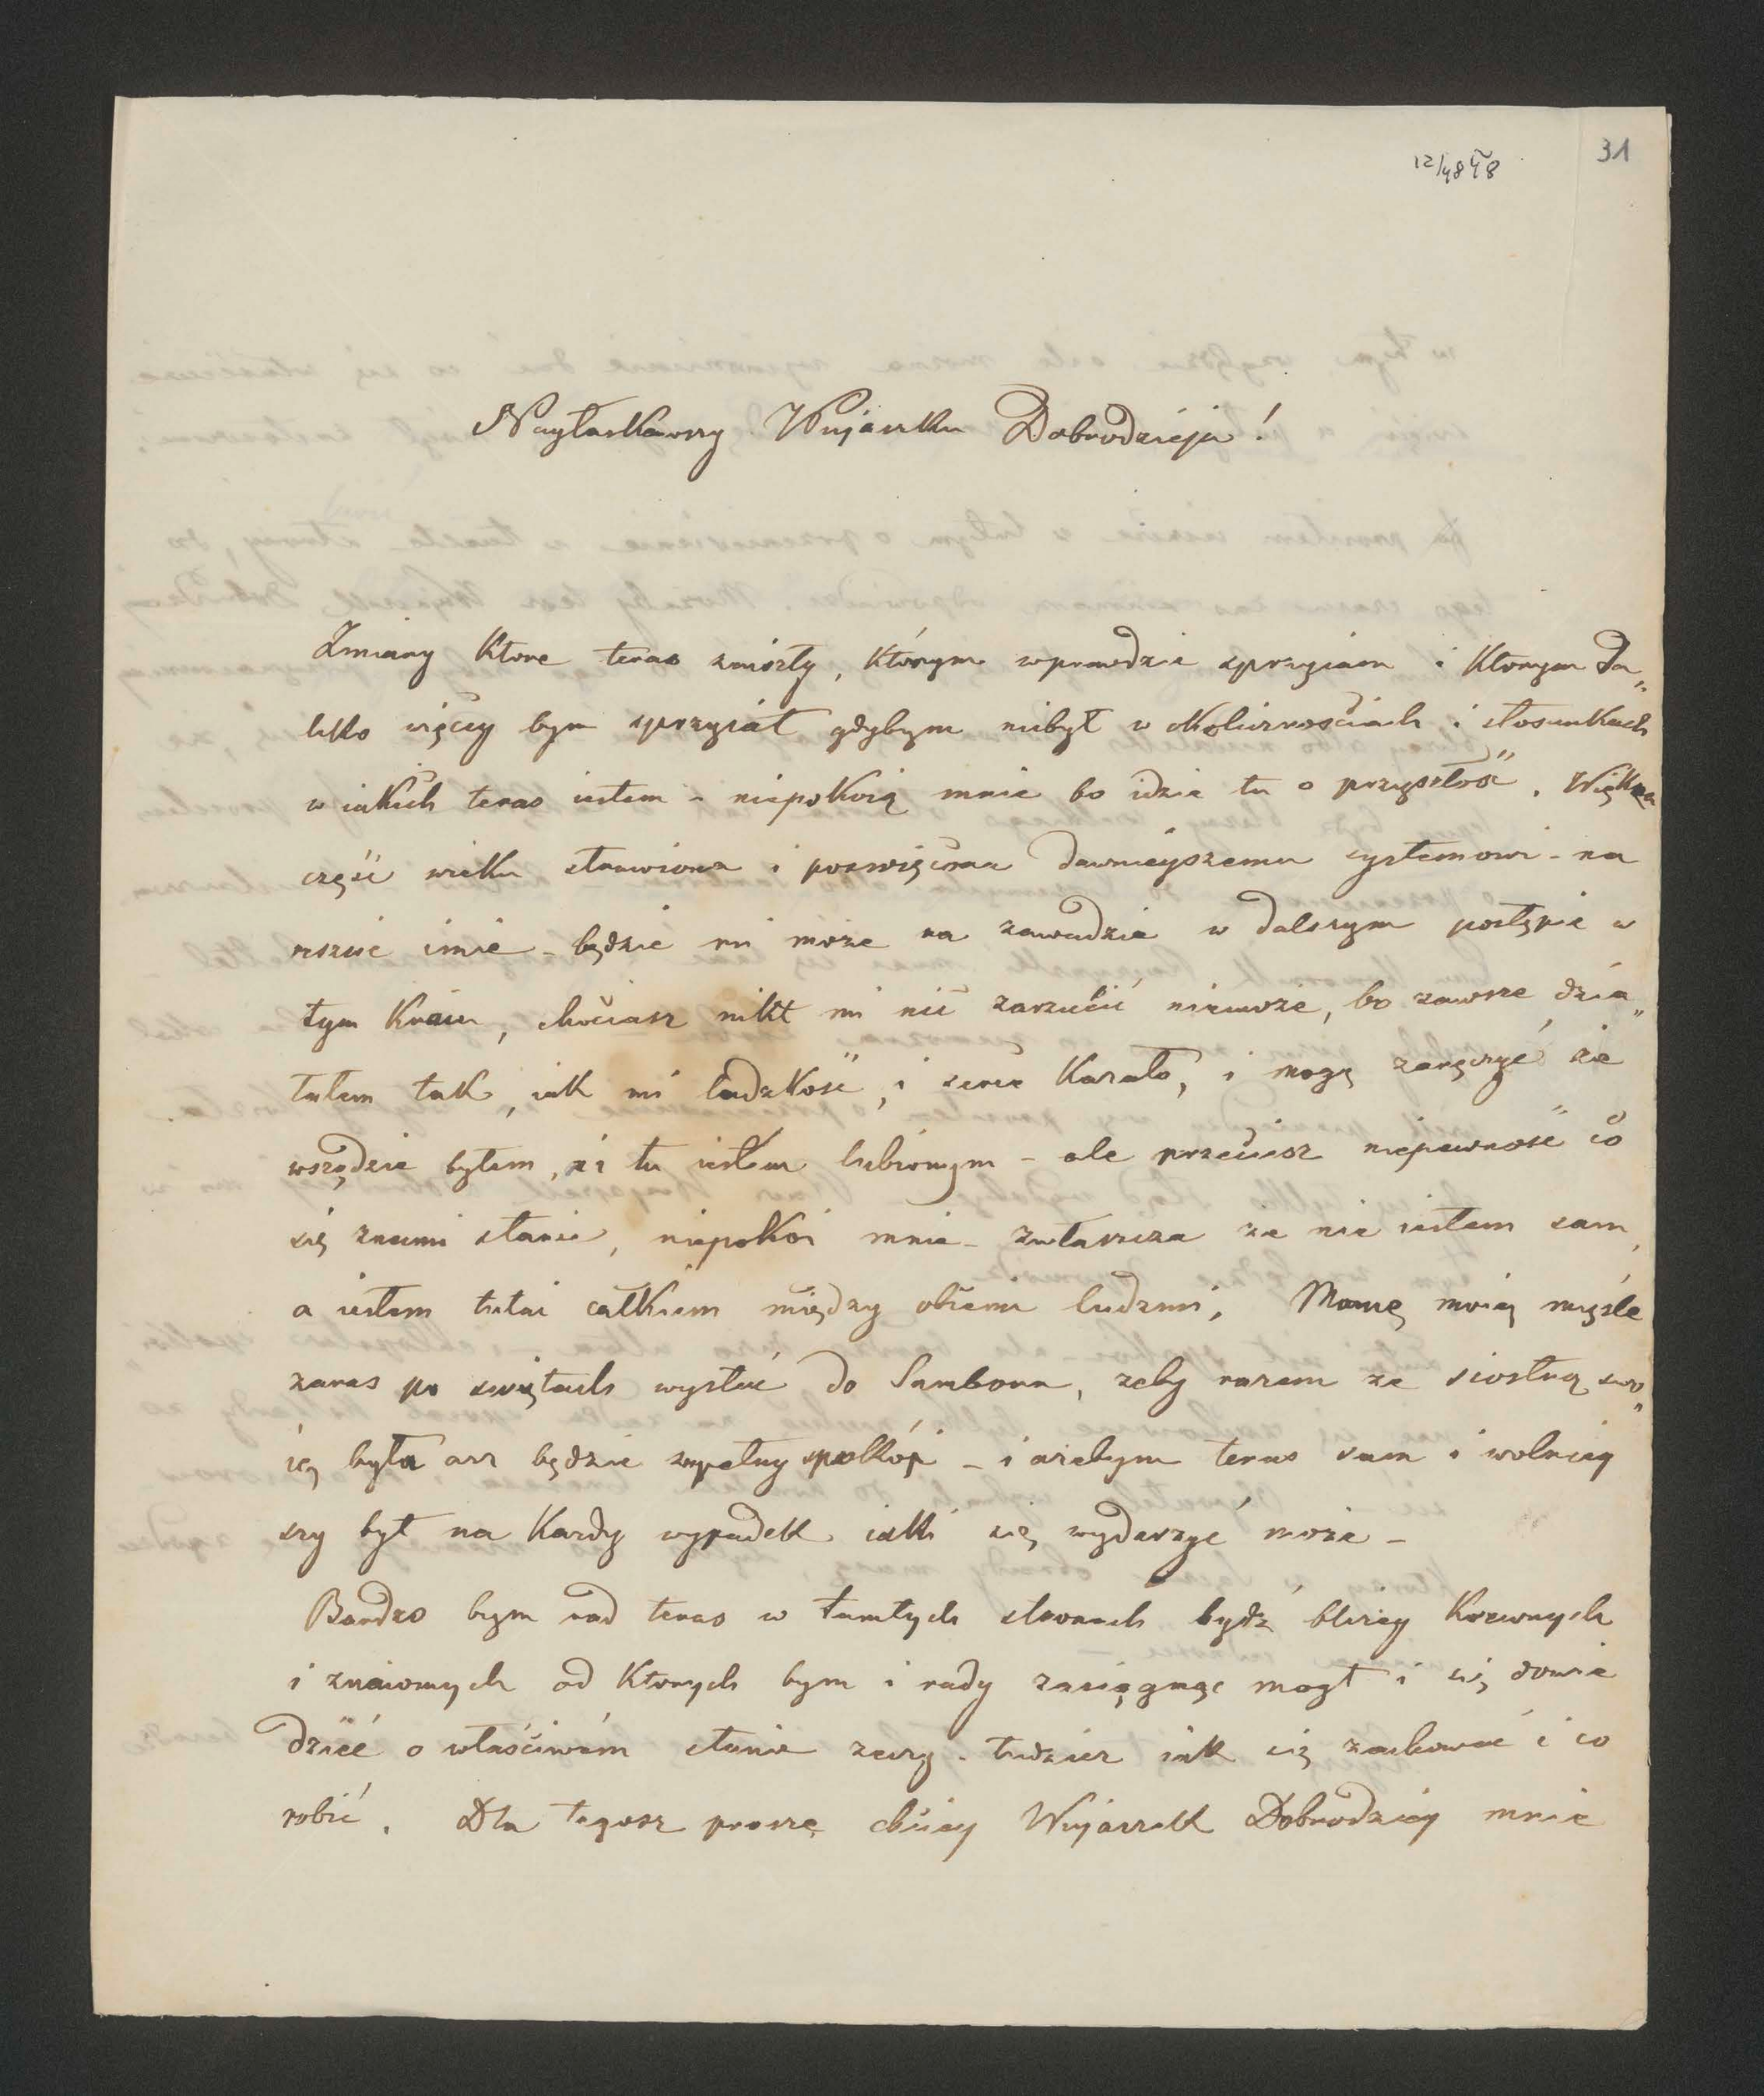 12/4 848
31
Nayłaskawszy Wujaszku Dobrodzieju!
Zmiany ktore teras zaiszły, którym wprawdzie sprzyiam i ktorym da„
leko więcey bym sprzyiał gdybym niebył w okolicznosciach i stosunkach
w iakich teras iestem - niepokoią mnie bo idzie tu o przyszłość. Większa
część wieku strawiona i poswięcona dawnieyszemu systemowi - na
resźcie imie - będzie mi może na zawadzie w dalszym postępie w
tym kraiu, chociasz nikt mi nic zarzucić niemoże, bo zawsze dzia„
łałem tak, iak mi ludzkość, i serce kazało, i mogę zaręczyć że
wszędzie byłem, i tu iestem lubionym - ale przeciesz niepewność co
się znami stanie, niepokoi mnie - zwłaszcza że nie iestem sam,
a iestem tutai całkiem między obcemi ludzmi. Mamę moię myśle
zaras po swiętach wysłać do Sambora, zeby razem ze siostrą swo„
ią była asz będzie zupełny spokój - i ażebym teras sam i wolniey
szy był na kazdy wypadek iaki się wydarzyć może -
Bardzo bym rad teras w tamtych stronach bydź bliżey krewnych
i znaiomych od ktorych bym i rady zasięgnąc mogł i się dowie
dzieć o właściwém stanie rzeczy - tudziesz iak się zachować i co
robić. Dla tegosz proszę chciey Wujaszek Dobrodziey mnie